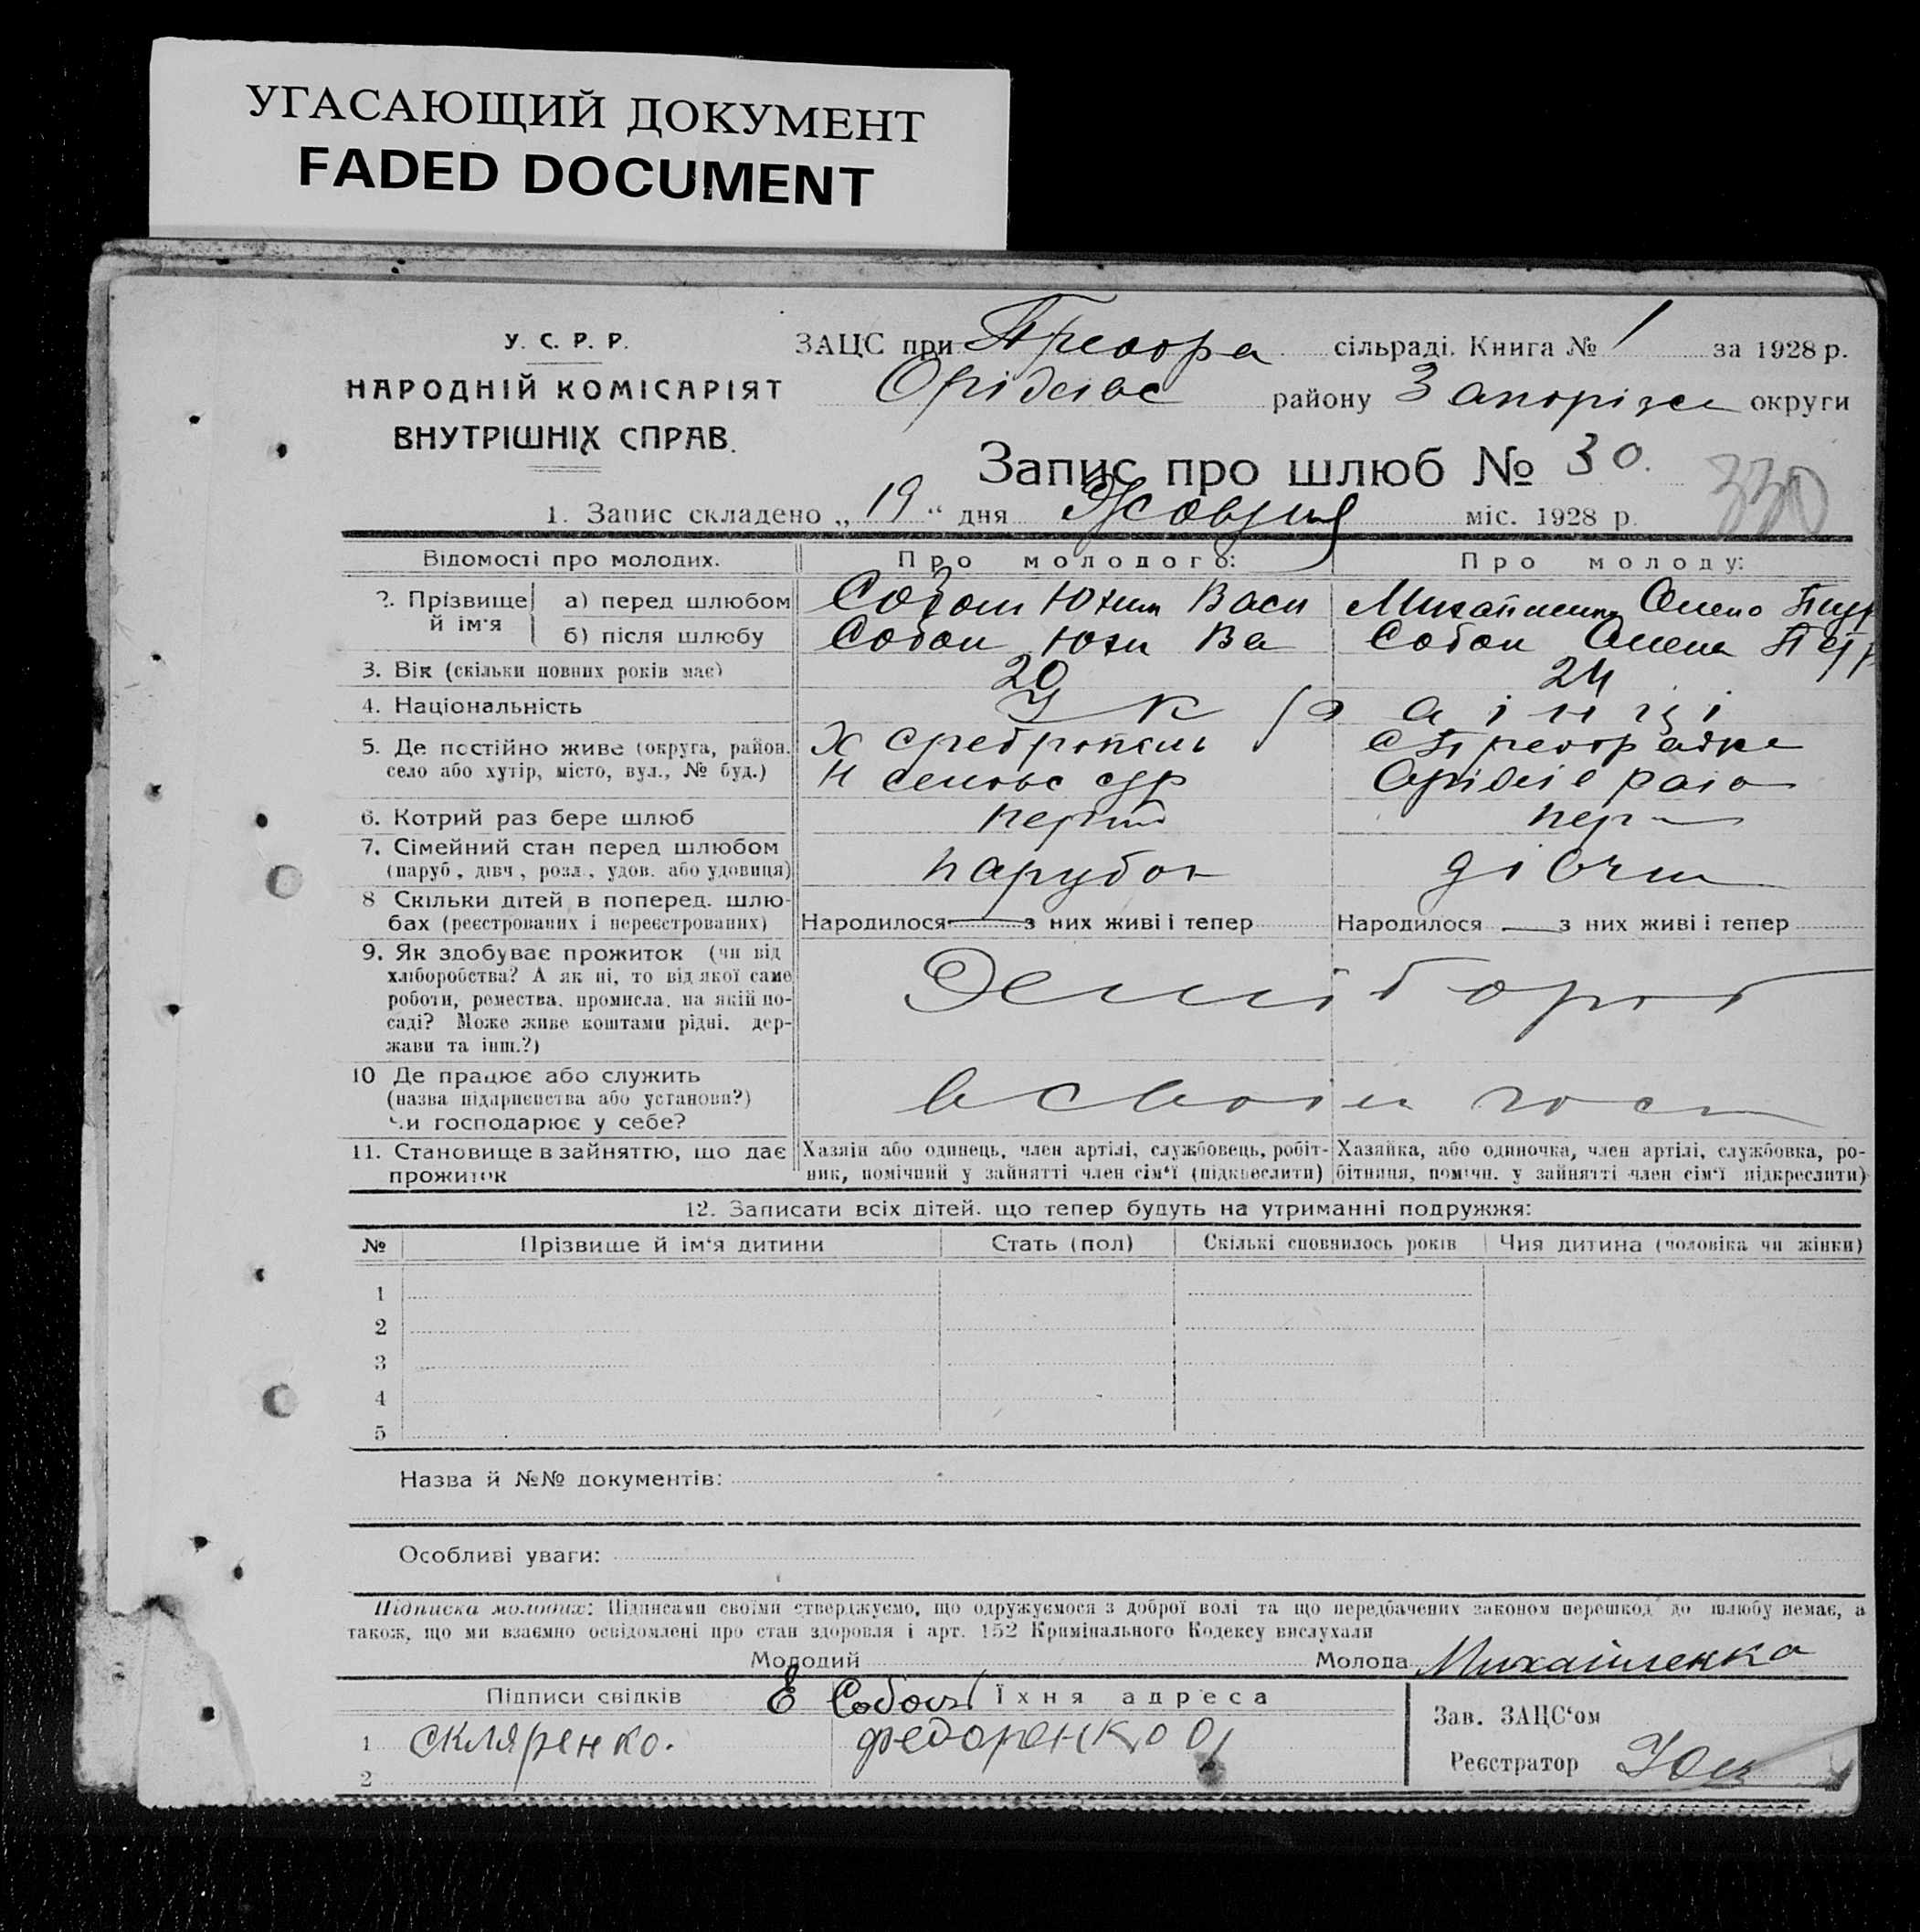 УГАСАЮЩИЙ ДОКУМЕНТ
FADED DOCUMENT
У. С. Р. Р.
НАРОДНІЙ КОМІСАРІЯТ
ВНУТРІШНІХ СПРАВ.
ЗАЦС при сільраді. Книга № 1 за 1928 р.
району Запоріж округи
Запис про шлюб № 30.
330
1. Запис складено „ 19 “ дня Жовтня міс. 1928 р.
Відомості про молодих. Про молодого: Про молоду:
2. Прізвище й ім'я а) перед шлюбом Собол Юхим Васи Олена
б) після шлюбу Собол Юхи Ва Собол Олена Петр
3. Вік (скільки повних років має) 20 24
4. Національність Українці
5. Де постійно живе (округа, район.
село або хутір, місто, вул., № буд.)
6. Котрий раз бере шлюб перший пер
7. Сімейний стан перед шлюбом
(паруб., дівч., розл., удов. або удовиця) парубок дівчи
8 Скільки дітей в поперед. шлю-
бах (реєстрованих і нереєстрованих) Народилося — з них живі і тепер Народилося — з них живі і тепер
9. Як здобуває прожиток (чи від
хліборобства? А як ні, то від якої саме
роботи, ремества, промисла, на якій по-
саді? Може живе коштами рідні, дер-
жави та інш.?)
10 Де працює або служить
(назва підприємства або установи?)
Чи господарює у себе? в своїм госп
11. Становище в зайняттю, що дає
прожиток
Хазяін або одинець, член артілі, службовець, робіт-
ник, помічний у зайнятті член сім'ї (підкреслити)
Хазяйка, або одиночка, член артілі, службовка, ро-
бітниця, помічн. у зайнятті член сім'ї підкреслити)
12. Записати всіх дітей. що тепер будуть на утриманні подружжя:
№ Прізвище й ім'я дитини Стать (пол) Скількі сповнилось років Чия дитина (чоловіка чи жінки)
1
2
3
4
5
Назва й №№ документів:
Особливі уваги:
Підписка молодих: Підписами своїми стверджуємо, що одружуємося з доброї волі та що передбачених законом перешкод до шлюбу немає, а
також, що ми взаємно освідомлені про стан здоровля і арт. 152 Кримінального Кодексу вислухали
Молодий Молода Михайленко
Підписи свідків Е Собол Їхня адреса
1 Скляренко. Федоренко
2
Зав. ЗАЦС'ом
Реєстратор